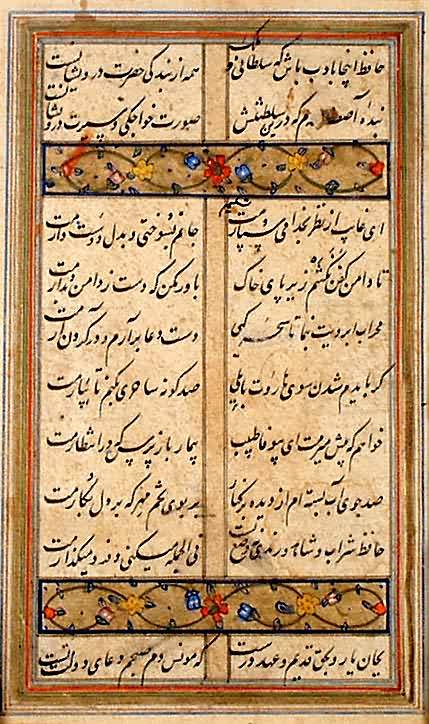 حافظ اینجا بادب باش که سلطانی و ملک همه از بندگی حضرت درویشانست
بنده آصف که درین سلطنتش صورت خواجگی و سیرت درویشانست
ای غایب از نظر بخدا می سپارمت جانم بسوختی و بدل دوست دارمت
تا دامن کفن نکشم زیر پای خاک باور مکن که دست ز دامن بدارمت
محراب ابرویت بنما تا سحرگهی دست دعا برآرم و در گردن آرمت
گر بایدم شدن سوی هاروت بابلی صد گونه ساحری بکنم تا بیارمت
خواهم که پیش میرمت ای بیوفا طبیب بیمار باز پرس که در انتظارمت
صد جوی آب بسته ام از دیده بر کنار بر بوی تخم مهر که در دل بکارمت
حافظ شراب و شاهد و رندی نه وضع تست فی الجمله میکنی و فرو میگذارمت
بجان یار و بحق قدیم و عهد درست که مونس دم صبحم دعای دولت تست